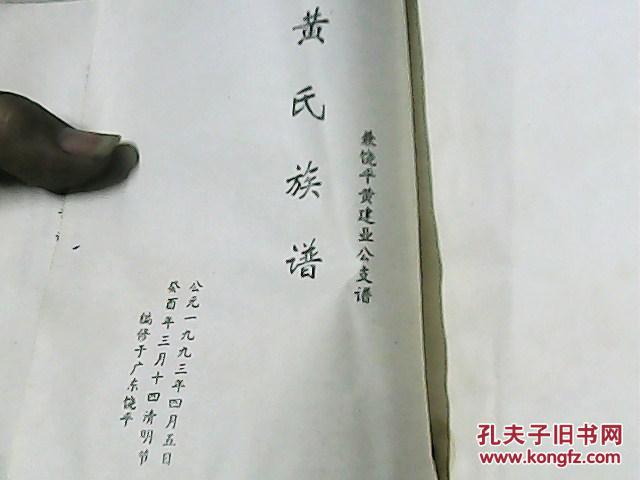 兼饶平黄建业公支谱
黄氏族谱
公元一九九三年四月五日
癸酉年三月十四清明节
编修于广东饶平
孔夫子旧书网
www.kongfz.com